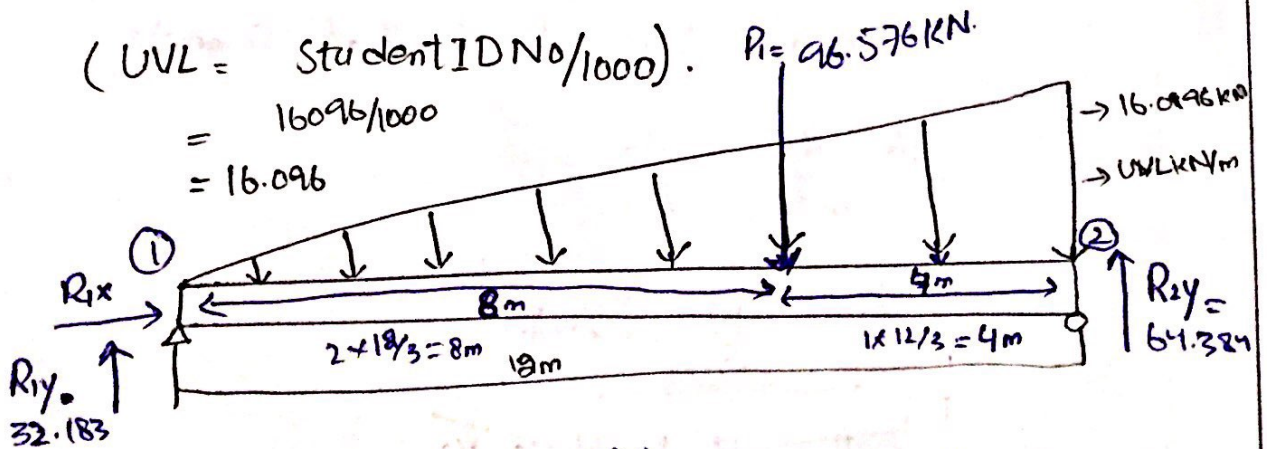 ( UVL = Student ID NO/1000). P1= 96.576KN.
= 16096/1000
= 16.096
→ 16.0996KN
→ UVLKN/m
① ②
R1x
8m 4m
R2y =
64.384
2×12/3=8m 1×12/3=4m
12m
R1y.
32.183